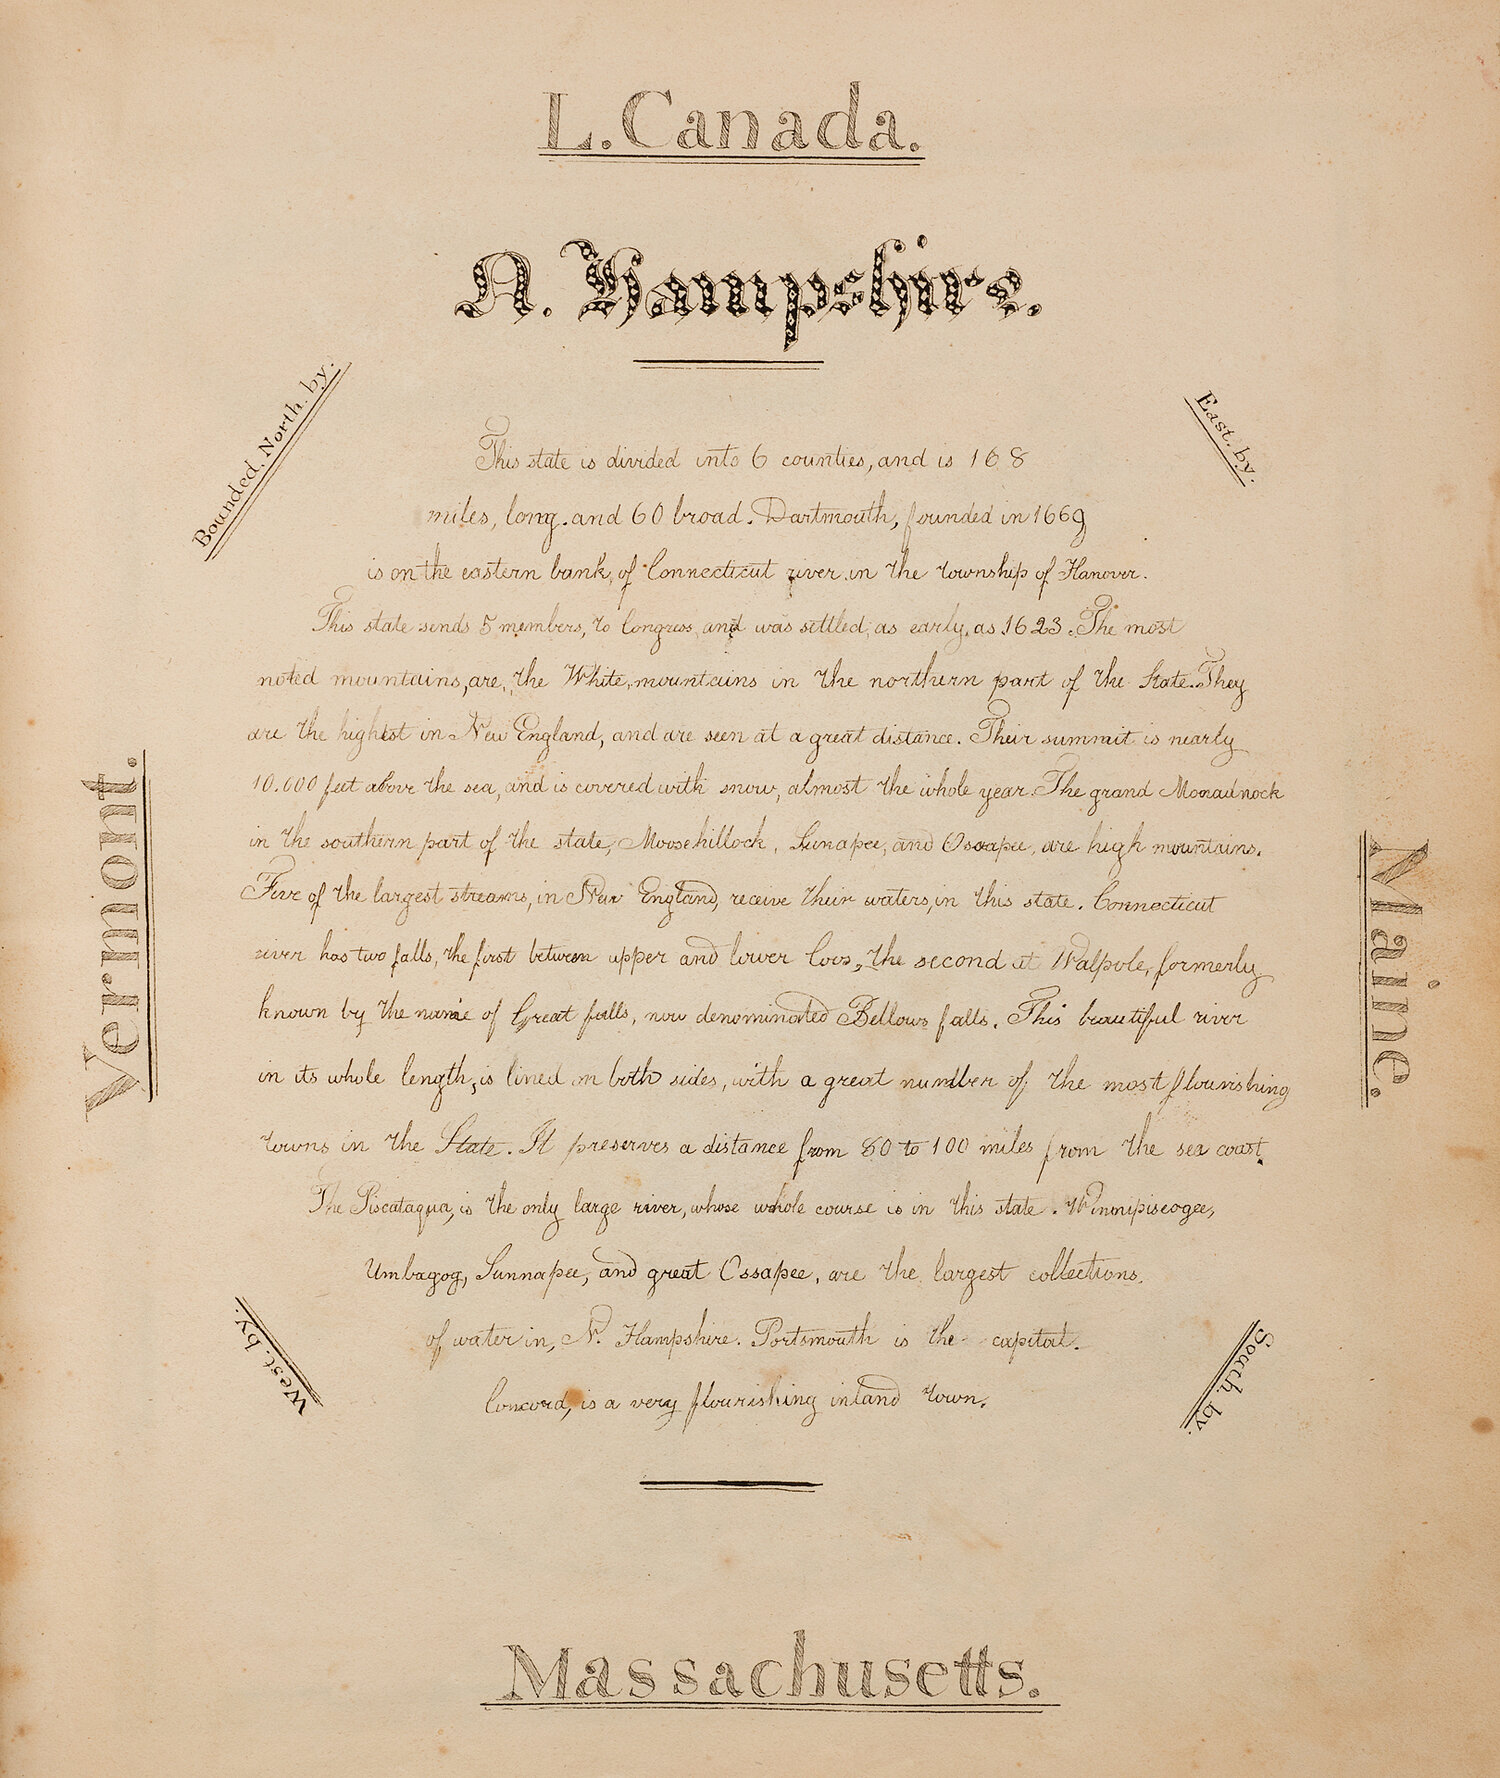 L. Canada.
N. Hampshire.
Bounded, North. by.
East. by.
This state is divided into 6 counties, and is 168
miles, long. and 60 broad. Dartmouth, founded in 1669
is on the eastern bank, of Connecticut river. in the township of Hanover.
This state sends 5 members, to Congress, and was settled, as early, as 1623. The most
noted mountains, are, the White, mountains in the northern part of the State. They
are the highest in New England, and are seen at a great distance. Their summit is nearly
10.000 feet above the sea, and is covered with snow, almost the whole year. The grand Monadnock
in the southern part of the state, Moosehillock, Sunapee, and Ossapee, are high mountains.
Five of the largest streams, in New England, receive their waters, in this state. Connecticut
river has two falls, the first between upper and lower Coos, the second at Walpole, formerly
known by the name of Great falls, now denominated Bellows falls. This beautiful river
in its whole length, is lined on both sides, with a great number of the most flourishing
towns in the State. It preserves a distance from 80 to 100 miles from the sea coast.
The Piscataqua, is the only large river, whose whole course is in this state. Winnipiseogee,
Umbagog, Sunnapee, and great Ossapee, are the largest collections.
of water in, N. Hampshire. Portsmouth is the capital.
Concord, is a very flourishing inland town.
Vermont.
Maine.
West. by.
South. by.
Massachusetts.